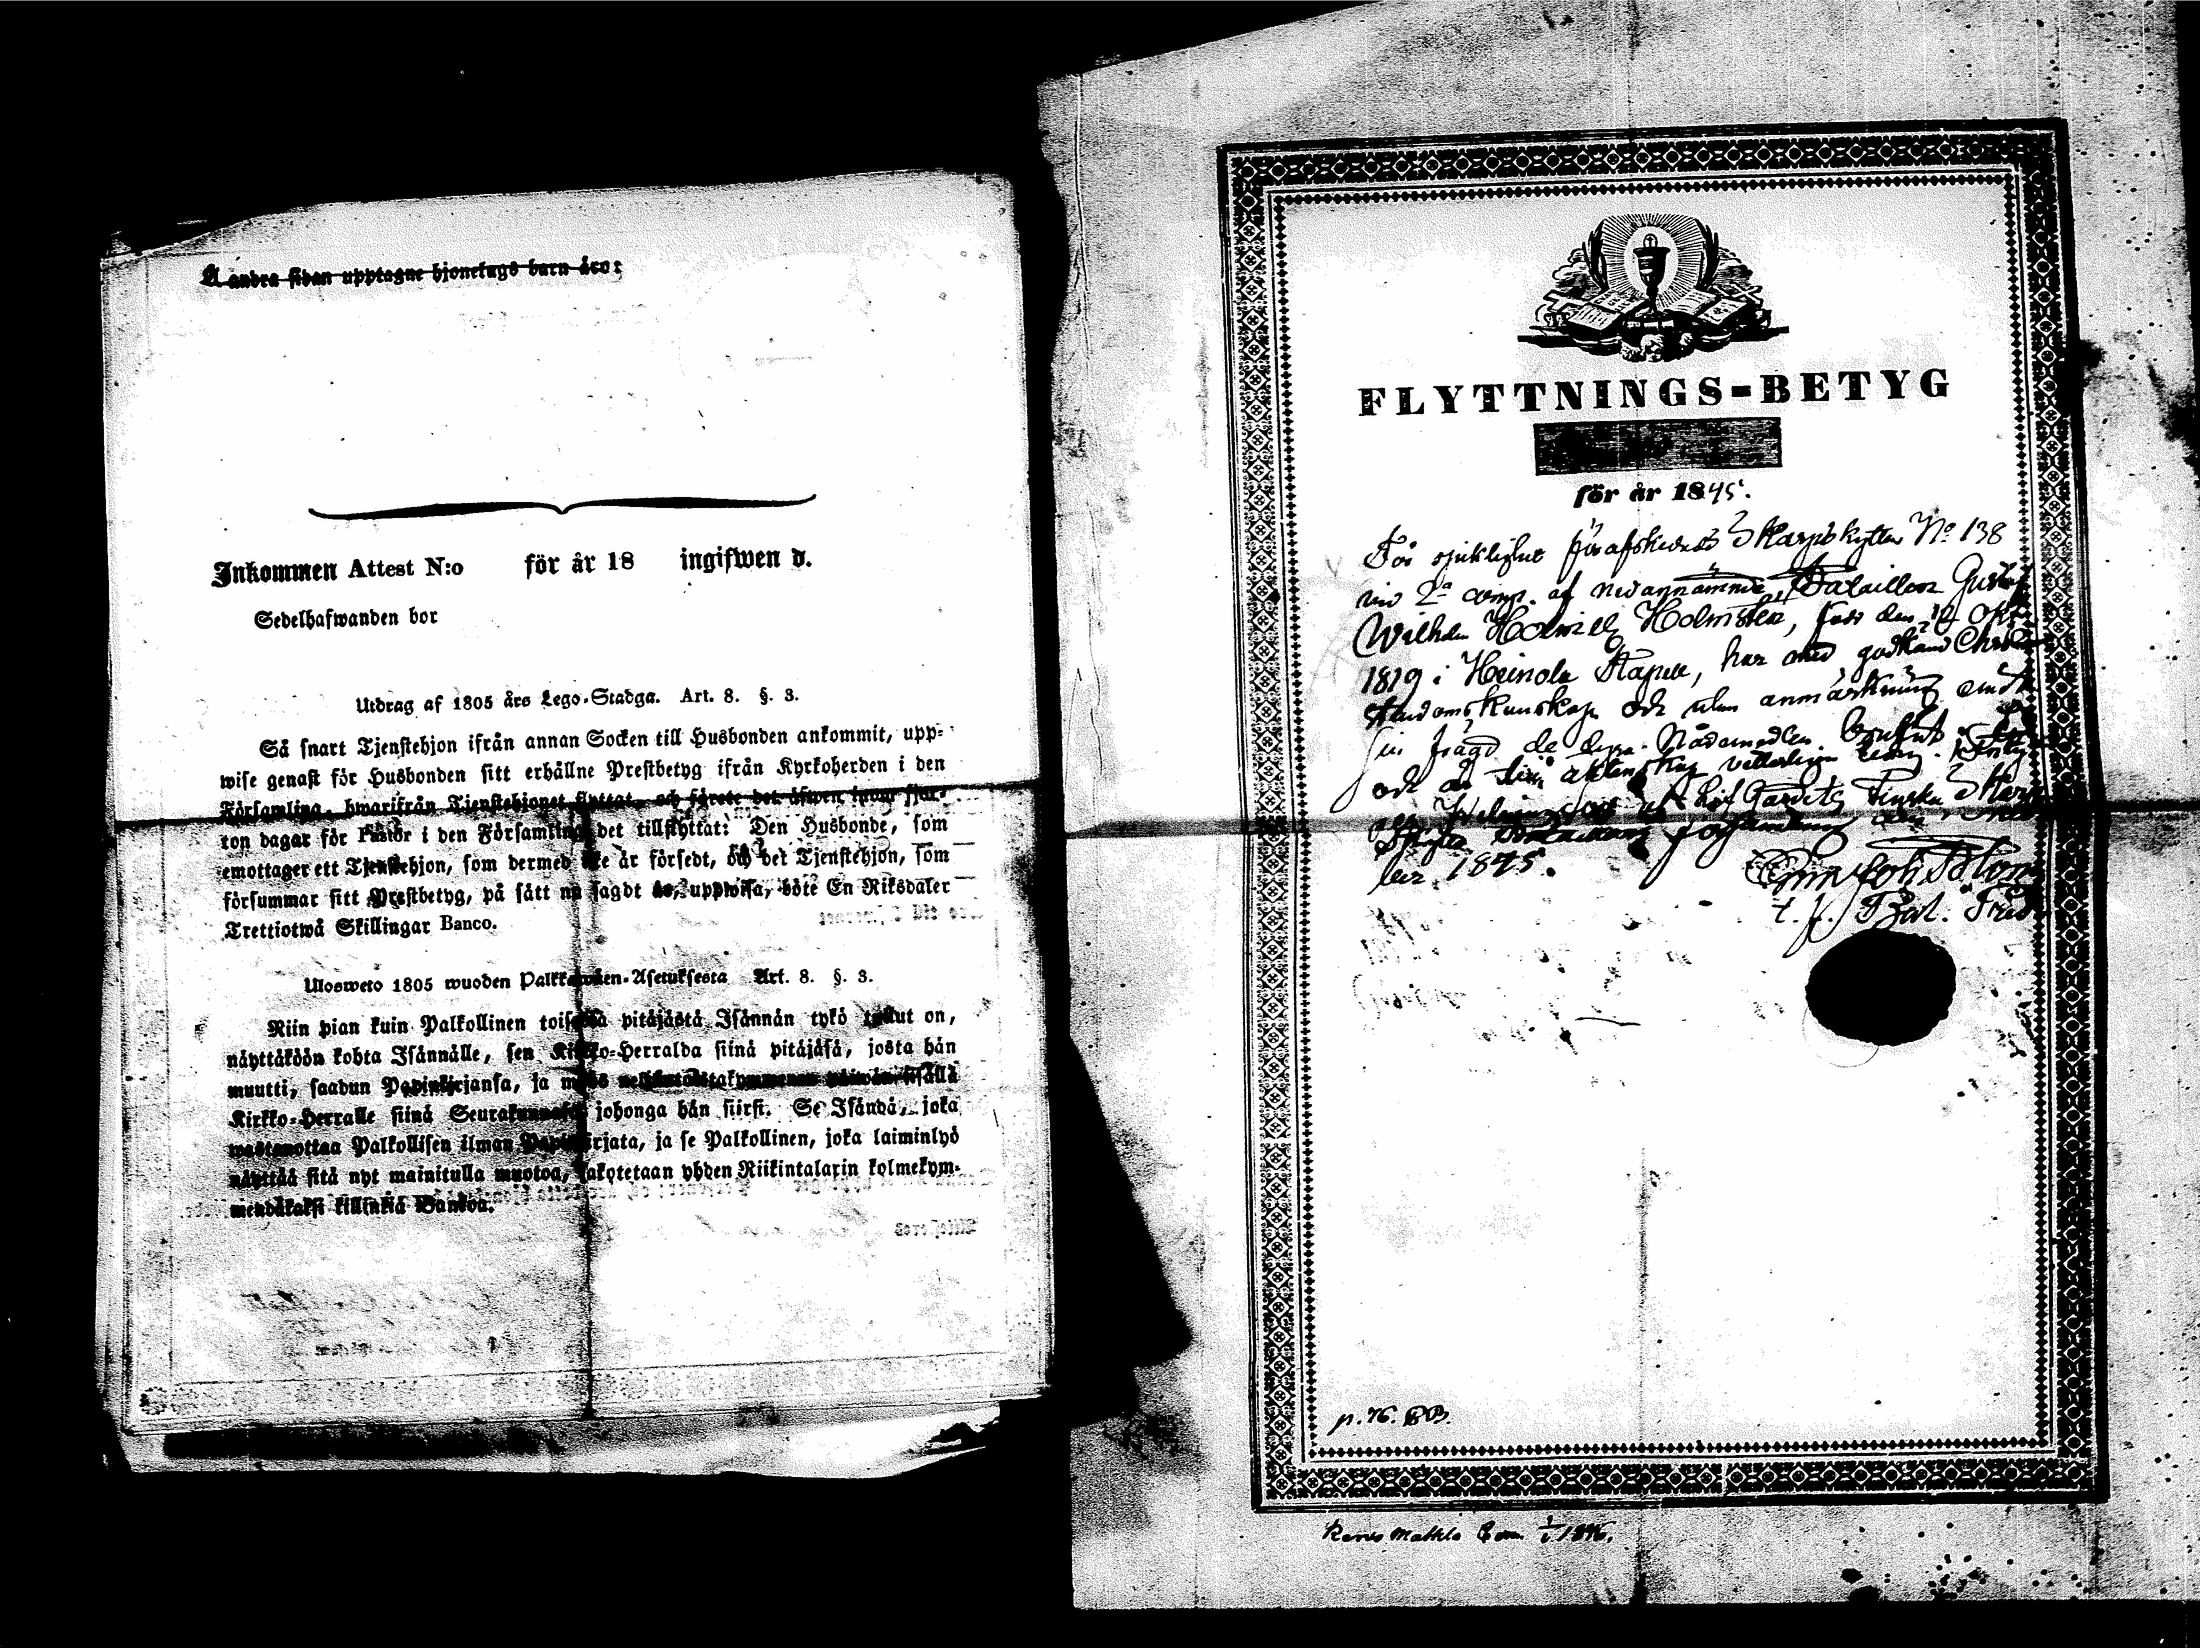 Å andra sidan upptagne hjonelags barn äro:
Inkommen Attest N:o för år 18 ingifwen d.
Sedelhafwanden bor
Utdrag af 1805 års Lego-Stadga. Art. 8. §. 3.
Så snart Tjenstehjon ifrån annan Socken till Husbonden ankommit, upp-
wise genast för Husbonden sitt erhållne Prestbetyg ifrån Kyrkoherden i den
Församling, hwarifrån Tjenstehjonet flyttat, och förete det äfwen inom fjor-
ton dagar för Pastor i den Församling det tillflyttat: Den Husbonde, som
emottager ett Tjenstehjon, som dermed icke är försedt, och det Tjenstehjon, som
försummar sitt Prestbetyg, på sätt nu sagdt är, uppwisa, böte En Riksdaler
Trettiotwå Skillingar Banco.
Ulosweto 1805 wuoden Palkkawäen-Asetuksesta Art. 8. §. 3.
Niin pian kuin Palkollinen toisesta pitäjästä Isännän tykö tullut on,
näyttäköön kohta Isännälle, sen Kirkko-Herralda siinä pitäjäsä, josta hän
muutti, saadun Papinkirjansa, ja myös neljäntoistakymmenen päiwän sisällä
Kirkko-Herralle siinä Seurakunnasa, johonga hän siirsi. Se Isändä, joka
wastanottaa Palkollisen ilman Papinkirjata, ja se Palkollinen, joka laiminlyö
näyttää sitä nyt mainitulla muotoa, sakotetaan yhden Riikintalarin kolmekym-
mendäkaksi killinkiä Bankoa.
FLYTTNINGS-BETYG
för år 1845.
För sjuklighet förafskedade Skarpskytten No 138
vid 2a comp. af nedannämnde Bataillon Gustaf
Wilhelm Holmsten, född den 12 Oct
1819 i Heinola Kapell, har med godkänd Christen
domskunskap och utan anmärkning
de dyra Nådamedlen
och är till äktenskap
Helsingfors af Lif Gardets Finska Skarp
skytte Bataillons församling den
ber 1845.
t. f. Bat. Pred.
p. 76. BB.
1/1 1846.